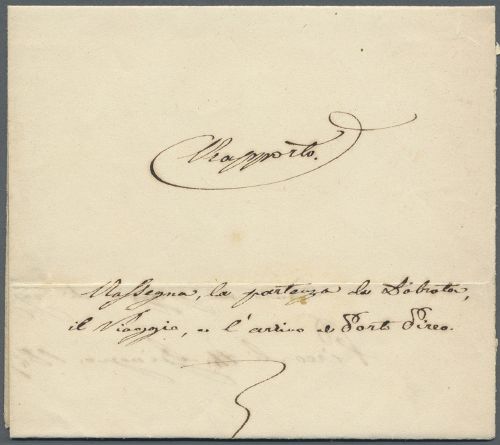 Rapporto.
Rassegna, la partenza da Dobrota,
il Viaggio, e l'arrivo al Port Pireo.